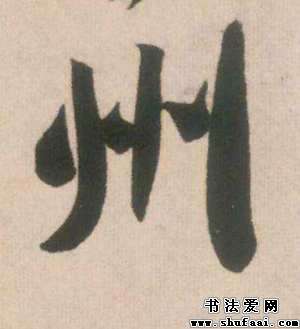 州
书法爱网
www.shufaai.com